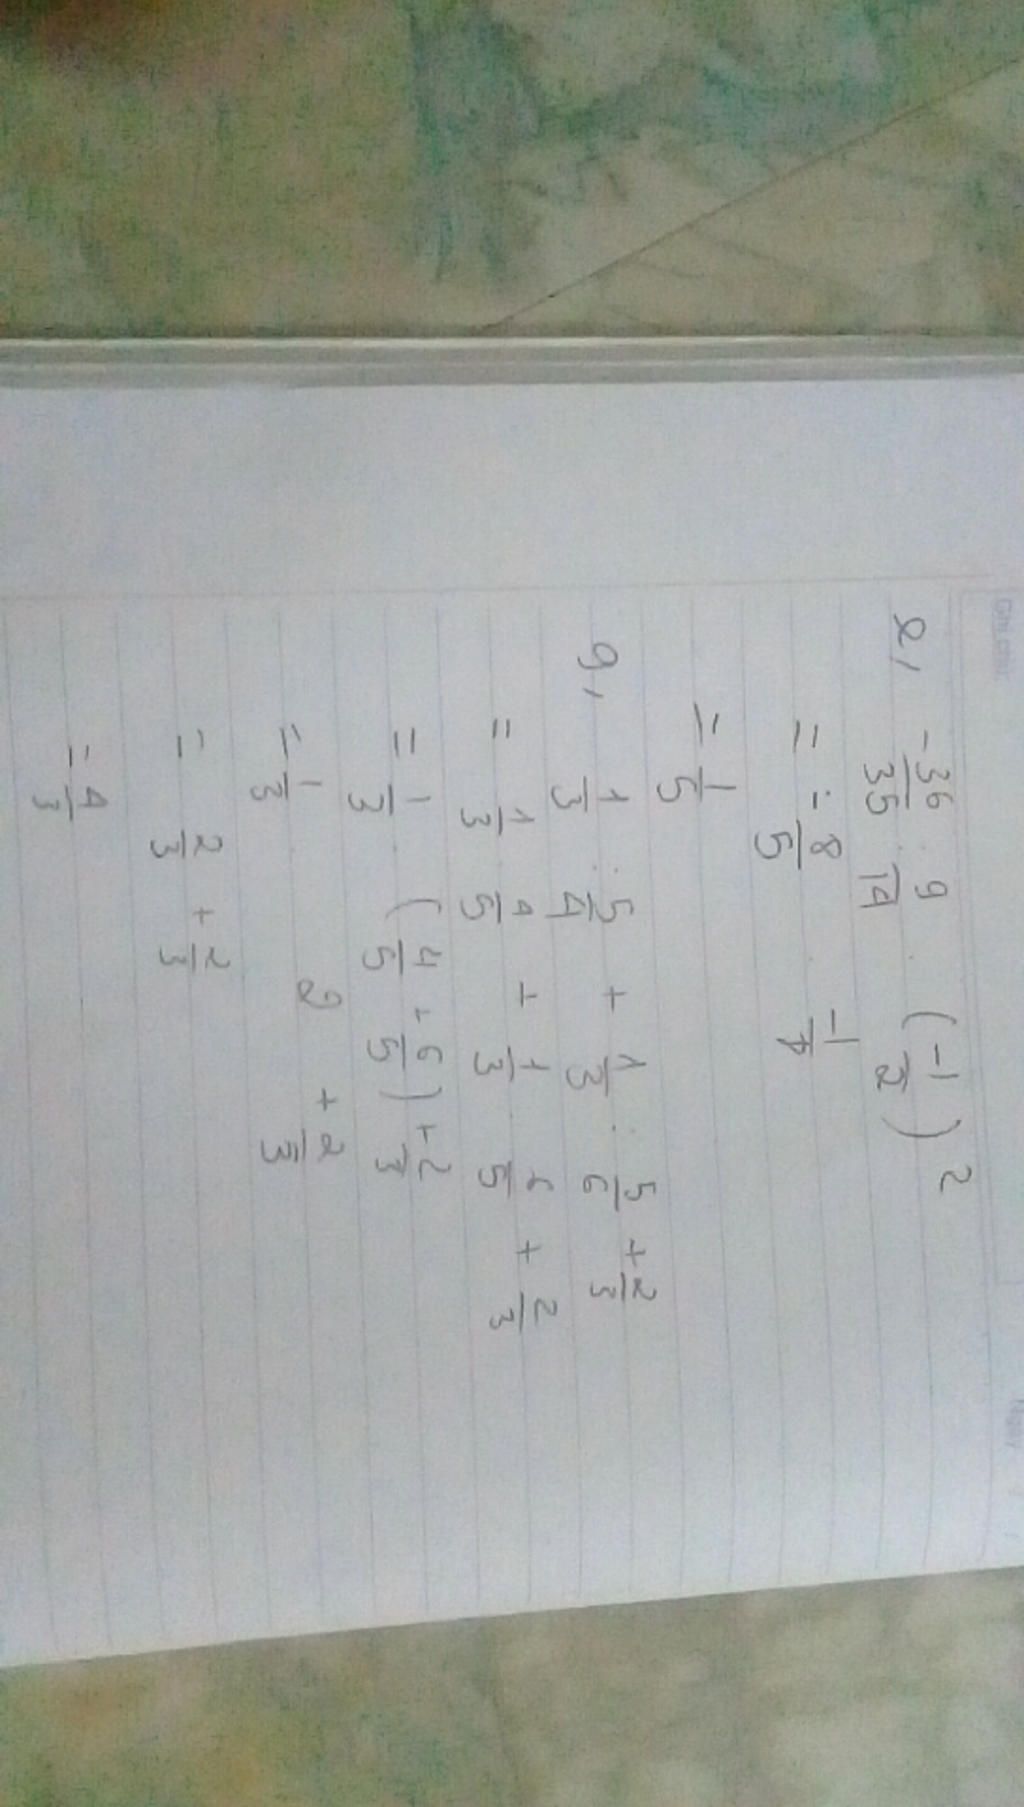 e, -36/35 : 9/14 . (-1/2)²
= -8/5 . -1/4
= 1/5
g, 1/3 : 5/4 + 1/3 : 5/6 + 2/3
= 1/3 . 4/5 + 1/3 . 6/5 + 2/3
= 1/3 . (4/5 + 6/5) + 2/3
= 1/3 . 2 + 2/3
= 2/3 + 2/3
= 4/3